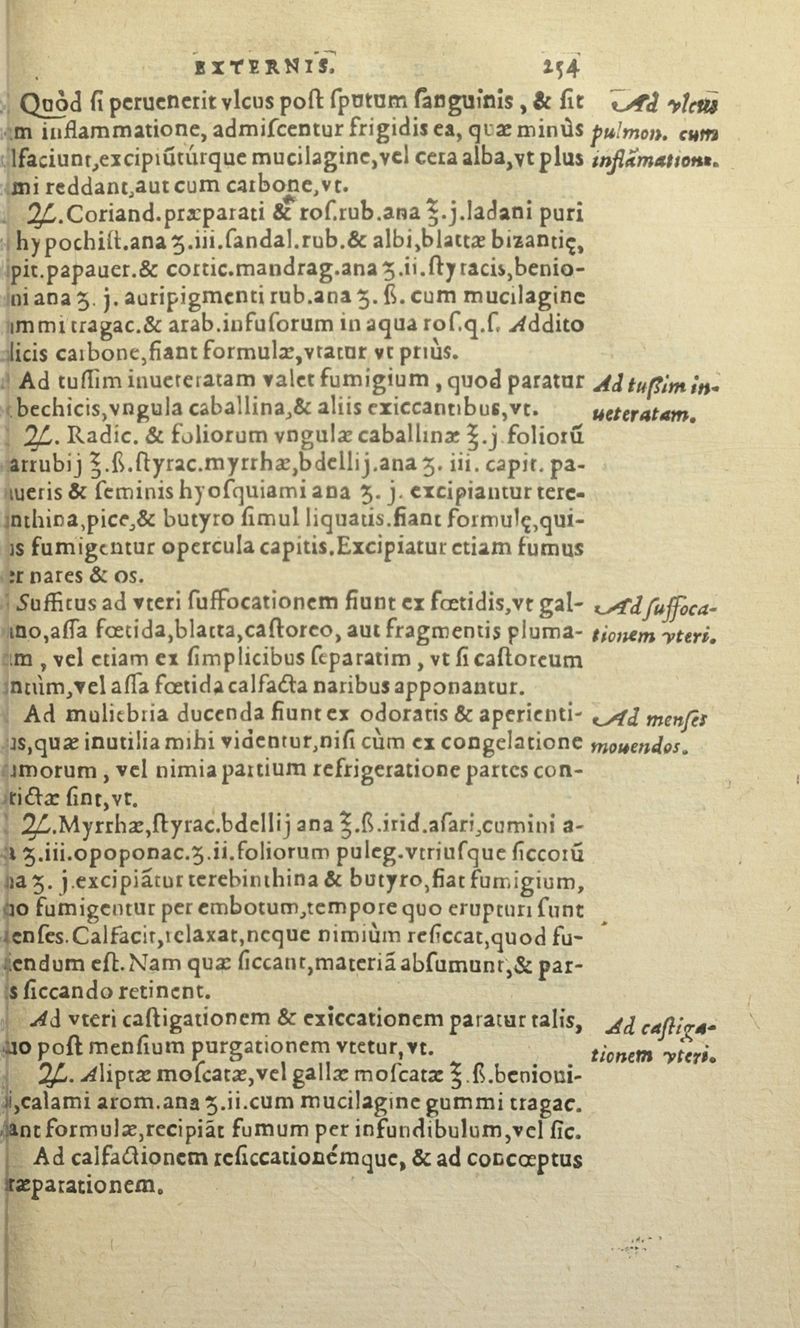 EXTERNIS. 254
Quòd ſi peruenerit vlcus poſt ſputum ſanguinis, & ſit
m inflammatione, admiſcentur frigidis ea, quæ minùs
lfaciunt, excipiũtúrque mucilagine, vel cera alba, vt plus
mi reddant, aut cum carbone, vt.
℞. Coriand. præparati & roſ. rub. ana ℥. j. ladani puri
hypochiſt. ana ʒ. iii. ſandal. rub. & albi, blattæ bizantię,
pit. papauer. & cortic. mandrag. ana ʒ. ii. ſtyracis, benio-
ni ana ʒ. j. auripigmenti rub. ana ʒ. ß. cum mucilagine
mmi tragac. & arab. infuſorum in aqua roſ. q. ſ. Addito
licis carbone, fiant formulæ, vtatur vt priùs.
Ad tuſſim inueteratam valet fumigium, quod paratur
bechicis, vngula caballina, & aliis exiccantibus, vt.
℞. Radic. & foliorum vngulæ caballinæ ℥. j. foliorũ
arrubij ℥. ß. ſtyrac. myrrhæ, bdellij. ana ʒ. iii. capit. pa-
ueris & ſeminis hyoſquiami ana ʒ. j. excipiantur tere-
nthina, pice, & butyro ſimul liquatis. fiant formulę, qui-
is fumigentur opercula capitis. Excipiatur etiam fumus
er nares & os.
Suffitus ad vteri ſuffocationem fiunt ex fœtidis, vt gal-
no, aſſa fœtida, blatta, caſtoreo, aut fragmentis pluma-
m, vel etiam ex ſimplicibus ſeparatim, vt ſi caſtoreum
ntùm, vel aſſa fœtida calfacta naribus apponantur.
Ad muliebria ducenda fiunt ex odoratis & aperienti-
is, quæ inutilia mihi videntur, niſi cùm ex congelatione
morum, vel nimia partium refrigeratione partes con-
rictæ ſint, vt.
℞. Myrrhæ, ſtyrac. bdellij ana ℥. ß. irid. aſari, cumini a-
a ʒ. iii. opoponac. ʒ. ii. foliorum puleg. vtriuſque ſiccorũ
na ʒ. j. excipiãtur terebinthina & butyro, fiat fumigium,
uo fumigentur per embotum, tempore quo erupturi ſunt
enſes. Calfacit, relaxat, neque nimiùm reſiccat, quod fu-
endum eſt. Nam quæ ſiccant, materiã abſumunt, & par-
s ſiccando retinent.
Ad vteri caſtigationem & exiccationem paratur talis,
uo poſt menſium purgationem vtetur, vt.
℞. Aliptæ moſcatæ, vel gallæ moſcatæ ℥. ß. benioni-
i, calami arom. ana ʒ. ii. cum mucilagine gummi tragac.
ant formulæ, recipiãt fumum per infundibulum, vel ſic.
Ad calfactionem reſiccationémque, & ad concœptus
ræparationem.
Ad vlcus
pulmon. cum
inflãmatione.
Ad tuſſim in-
ueteratam.
Ad ſuffoca-
tionem vteri.
Ad menſes
mouendos.
Ad caſtiga-
tionem vteri.